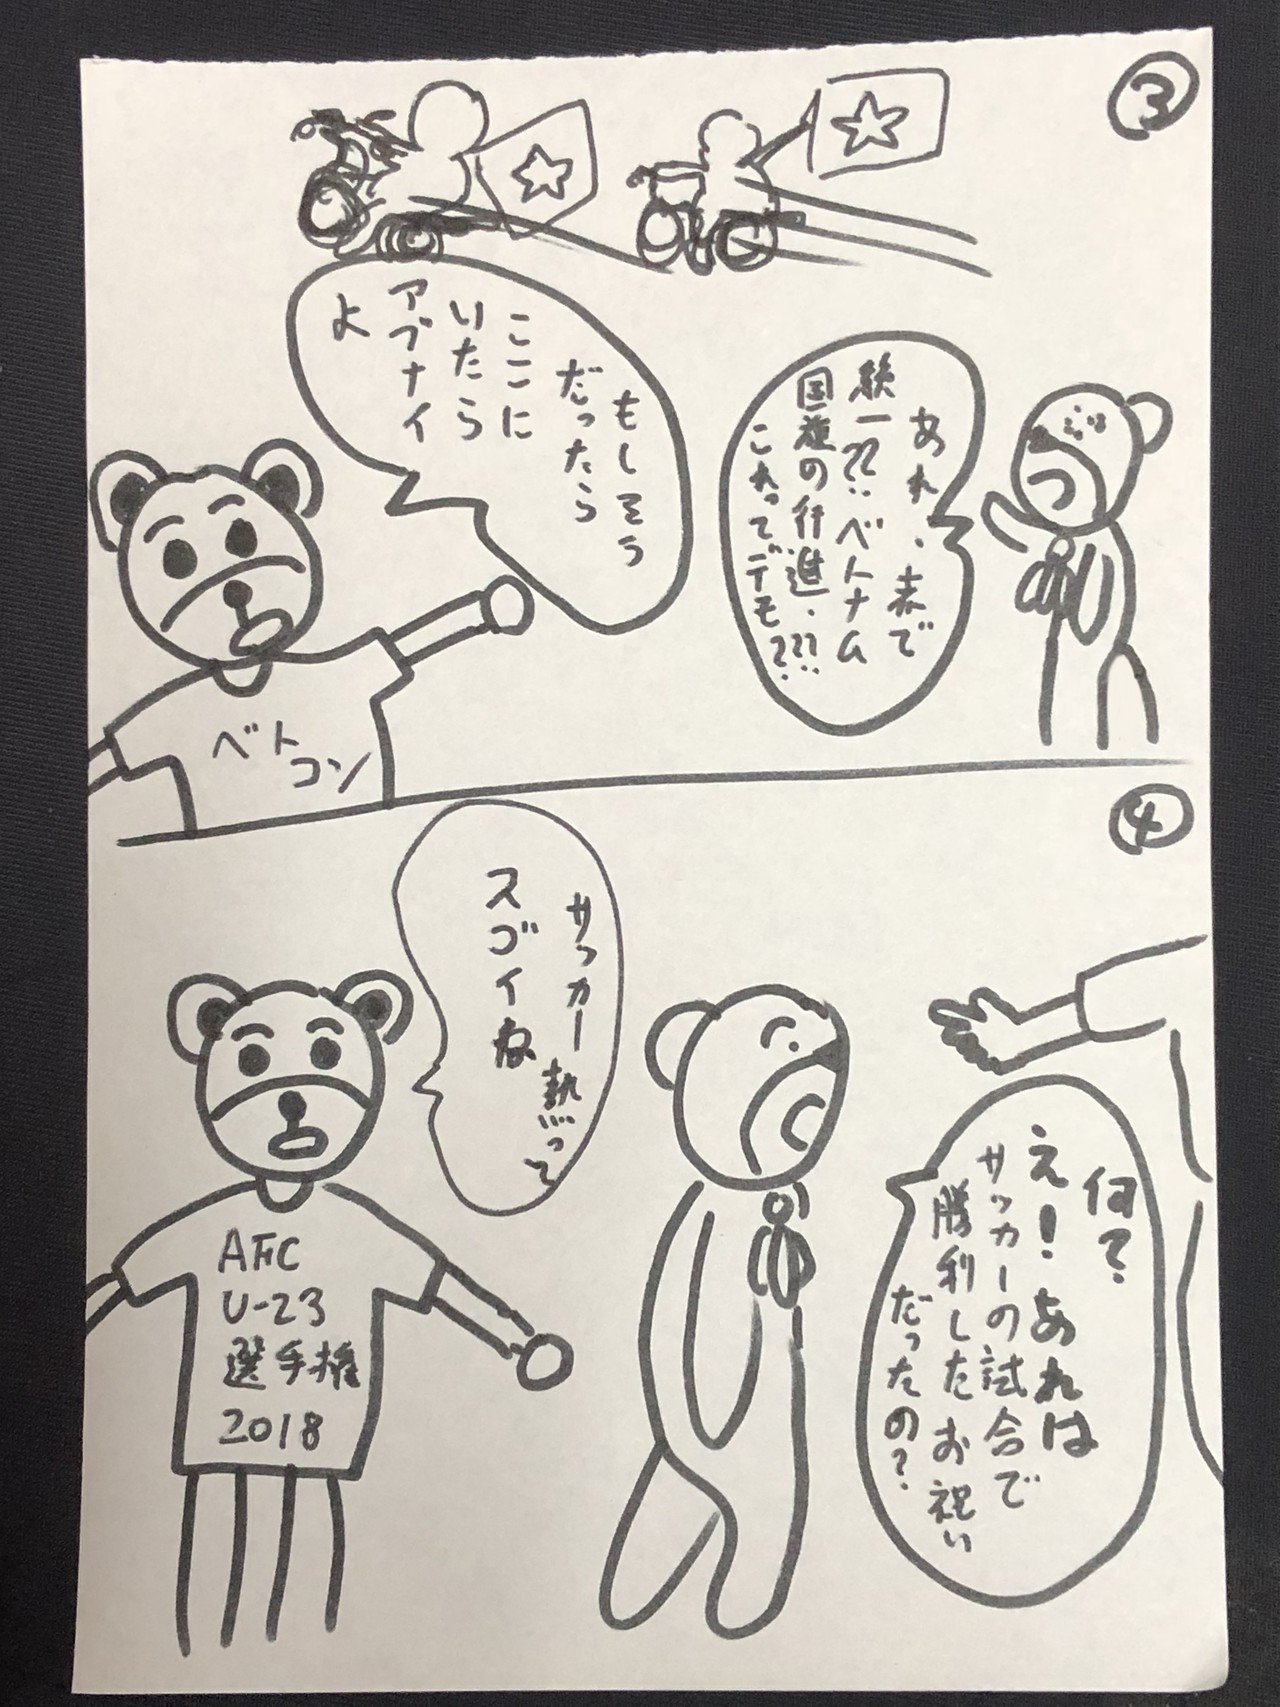 ③
あれ、赤で
統一??ベトナム
国旗の行進、???
これってデモ?
もしそう
だったら
ここに
いたら
アブナイ
よ
ベト
コン
④
何?
え!あれは
サッカーの試合で
勝利したお祝い
だったの?
サッカー熱って
スゴイね
AFC
U-23
選手権
2018